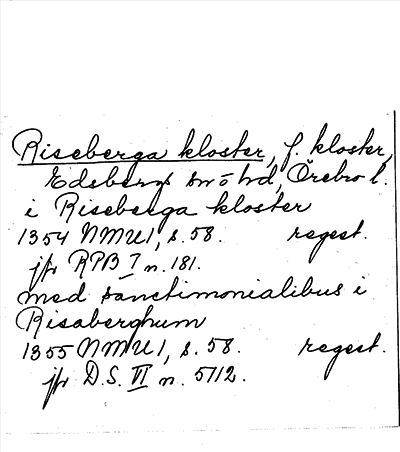 Riseberga kloster, f. kloster,
Edsbergs sn o hd, Örebro l.
i Riseberga kloster
1354 NMU1, s. 58. regest.
jfr RPB I n. 181.
med sanctimonialibus i
Risaberghum
1355 NMU1, s. 58. regest.
jfr D.S. VI n. 5112.